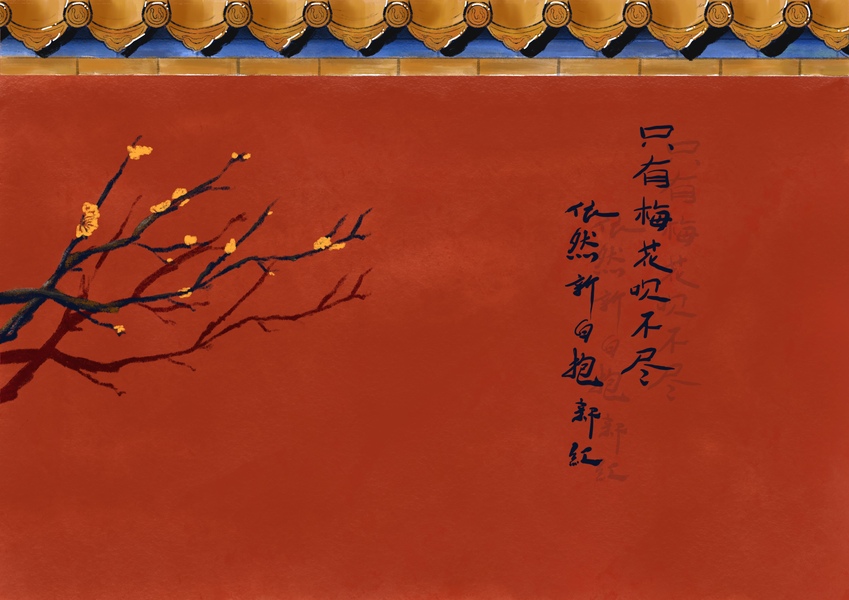 只有梅花吹不尽
依然新白抱新红